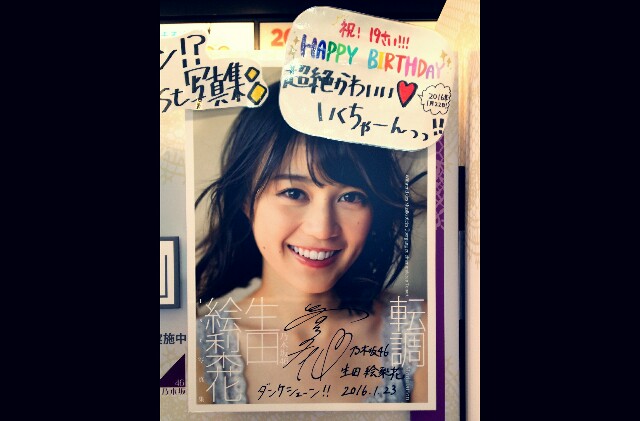 祝! 19さい!!!
HAPPY BIRTHDAY
超絶かわいい
いくちゃーんっっ!!
2016年
1月22日
ン!?
st写真集
転調
生田
絵梨花
乃木坂46
生田 絵梨花
ダンケシェーン!! 2016.1.23
実施中
46
乃木坂